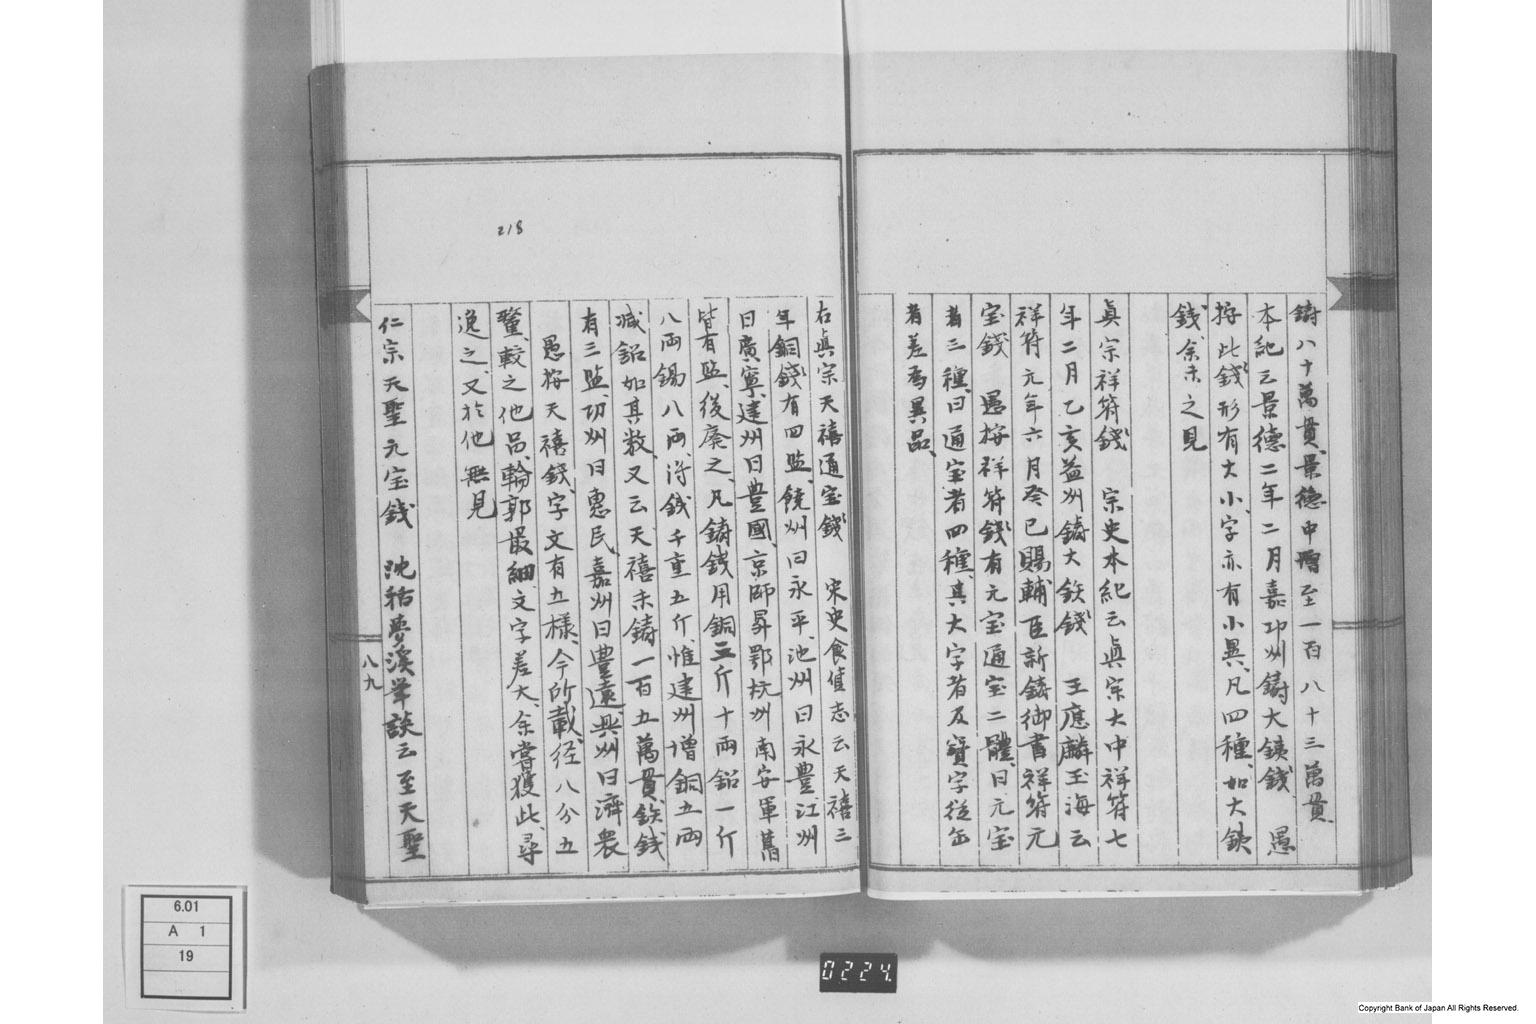 鑄八十萬貫、景德中增至一百八十三萬貫
本紀云景德二年二月嘉卭州鑄大鉄錢　愚
按此錢形有大小、字亦有小異、凡四種、如大鉄
錢、余未之見
眞宗祥符錢　宗史本紀云眞宗大中祥符七
年二月乙亥益州鑄大鉄錢　王應麟玉海云
祥符元年六月癸巳賜輔臣新鑄御書祥符元
宝錢　愚按祥符錢有元宝通宝二體、曰元宝
者三種、曰通宝者四種、其大字者及寶字從缶
者差為異品、
右眞宗天禧通宝錢　宋史食値志云天禧三
年銅錢有四監、饒州曰永平、池州曰永豊、江州
曰廣寧、建州曰豊國、京師昇鄂杭州南安軍舊
皆有監、後廃之、凡鑄錢用銅三斤十両鉛一斤
八両錫八両、得錢千重五斤、惟建州增銅五両
减鉛如其数、又云天禧末鑄一百五萬貫、鉄錢
有三監、卭州曰惠民、嘉州曰豊遠、興州曰濟衆
愚按天禧錢、字文有五様、今所載、径八分五
釐、較之他品、輪郭最細、文字差大、余嘗獲此、尋
逸之、又於他無見
仁宗天聖元宝錢　沈括夢溪筆談云至天聖
八九
218
6.01
A 1
19
0224.
Copyright Bank of Japan All Rights Reserved.